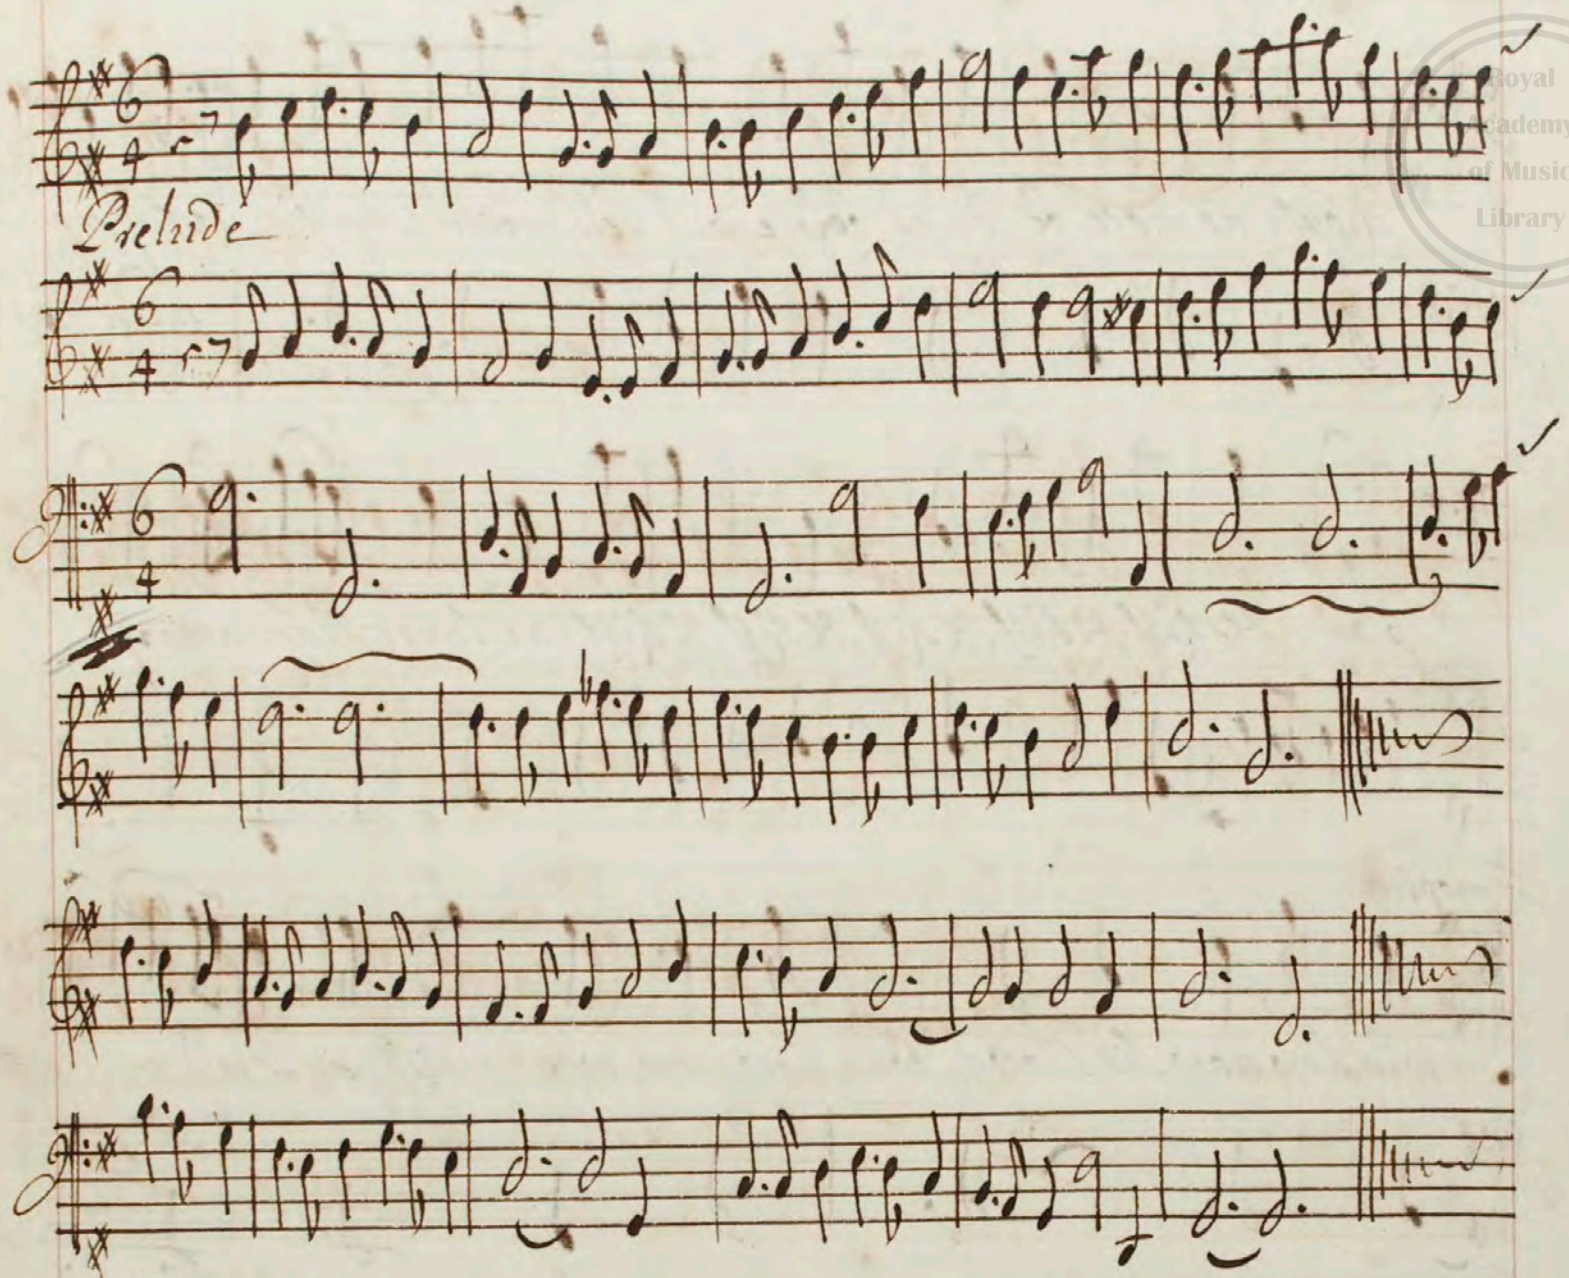 Royal
Academy
of Music
Library
6
4
Prelude
6
4
6
4